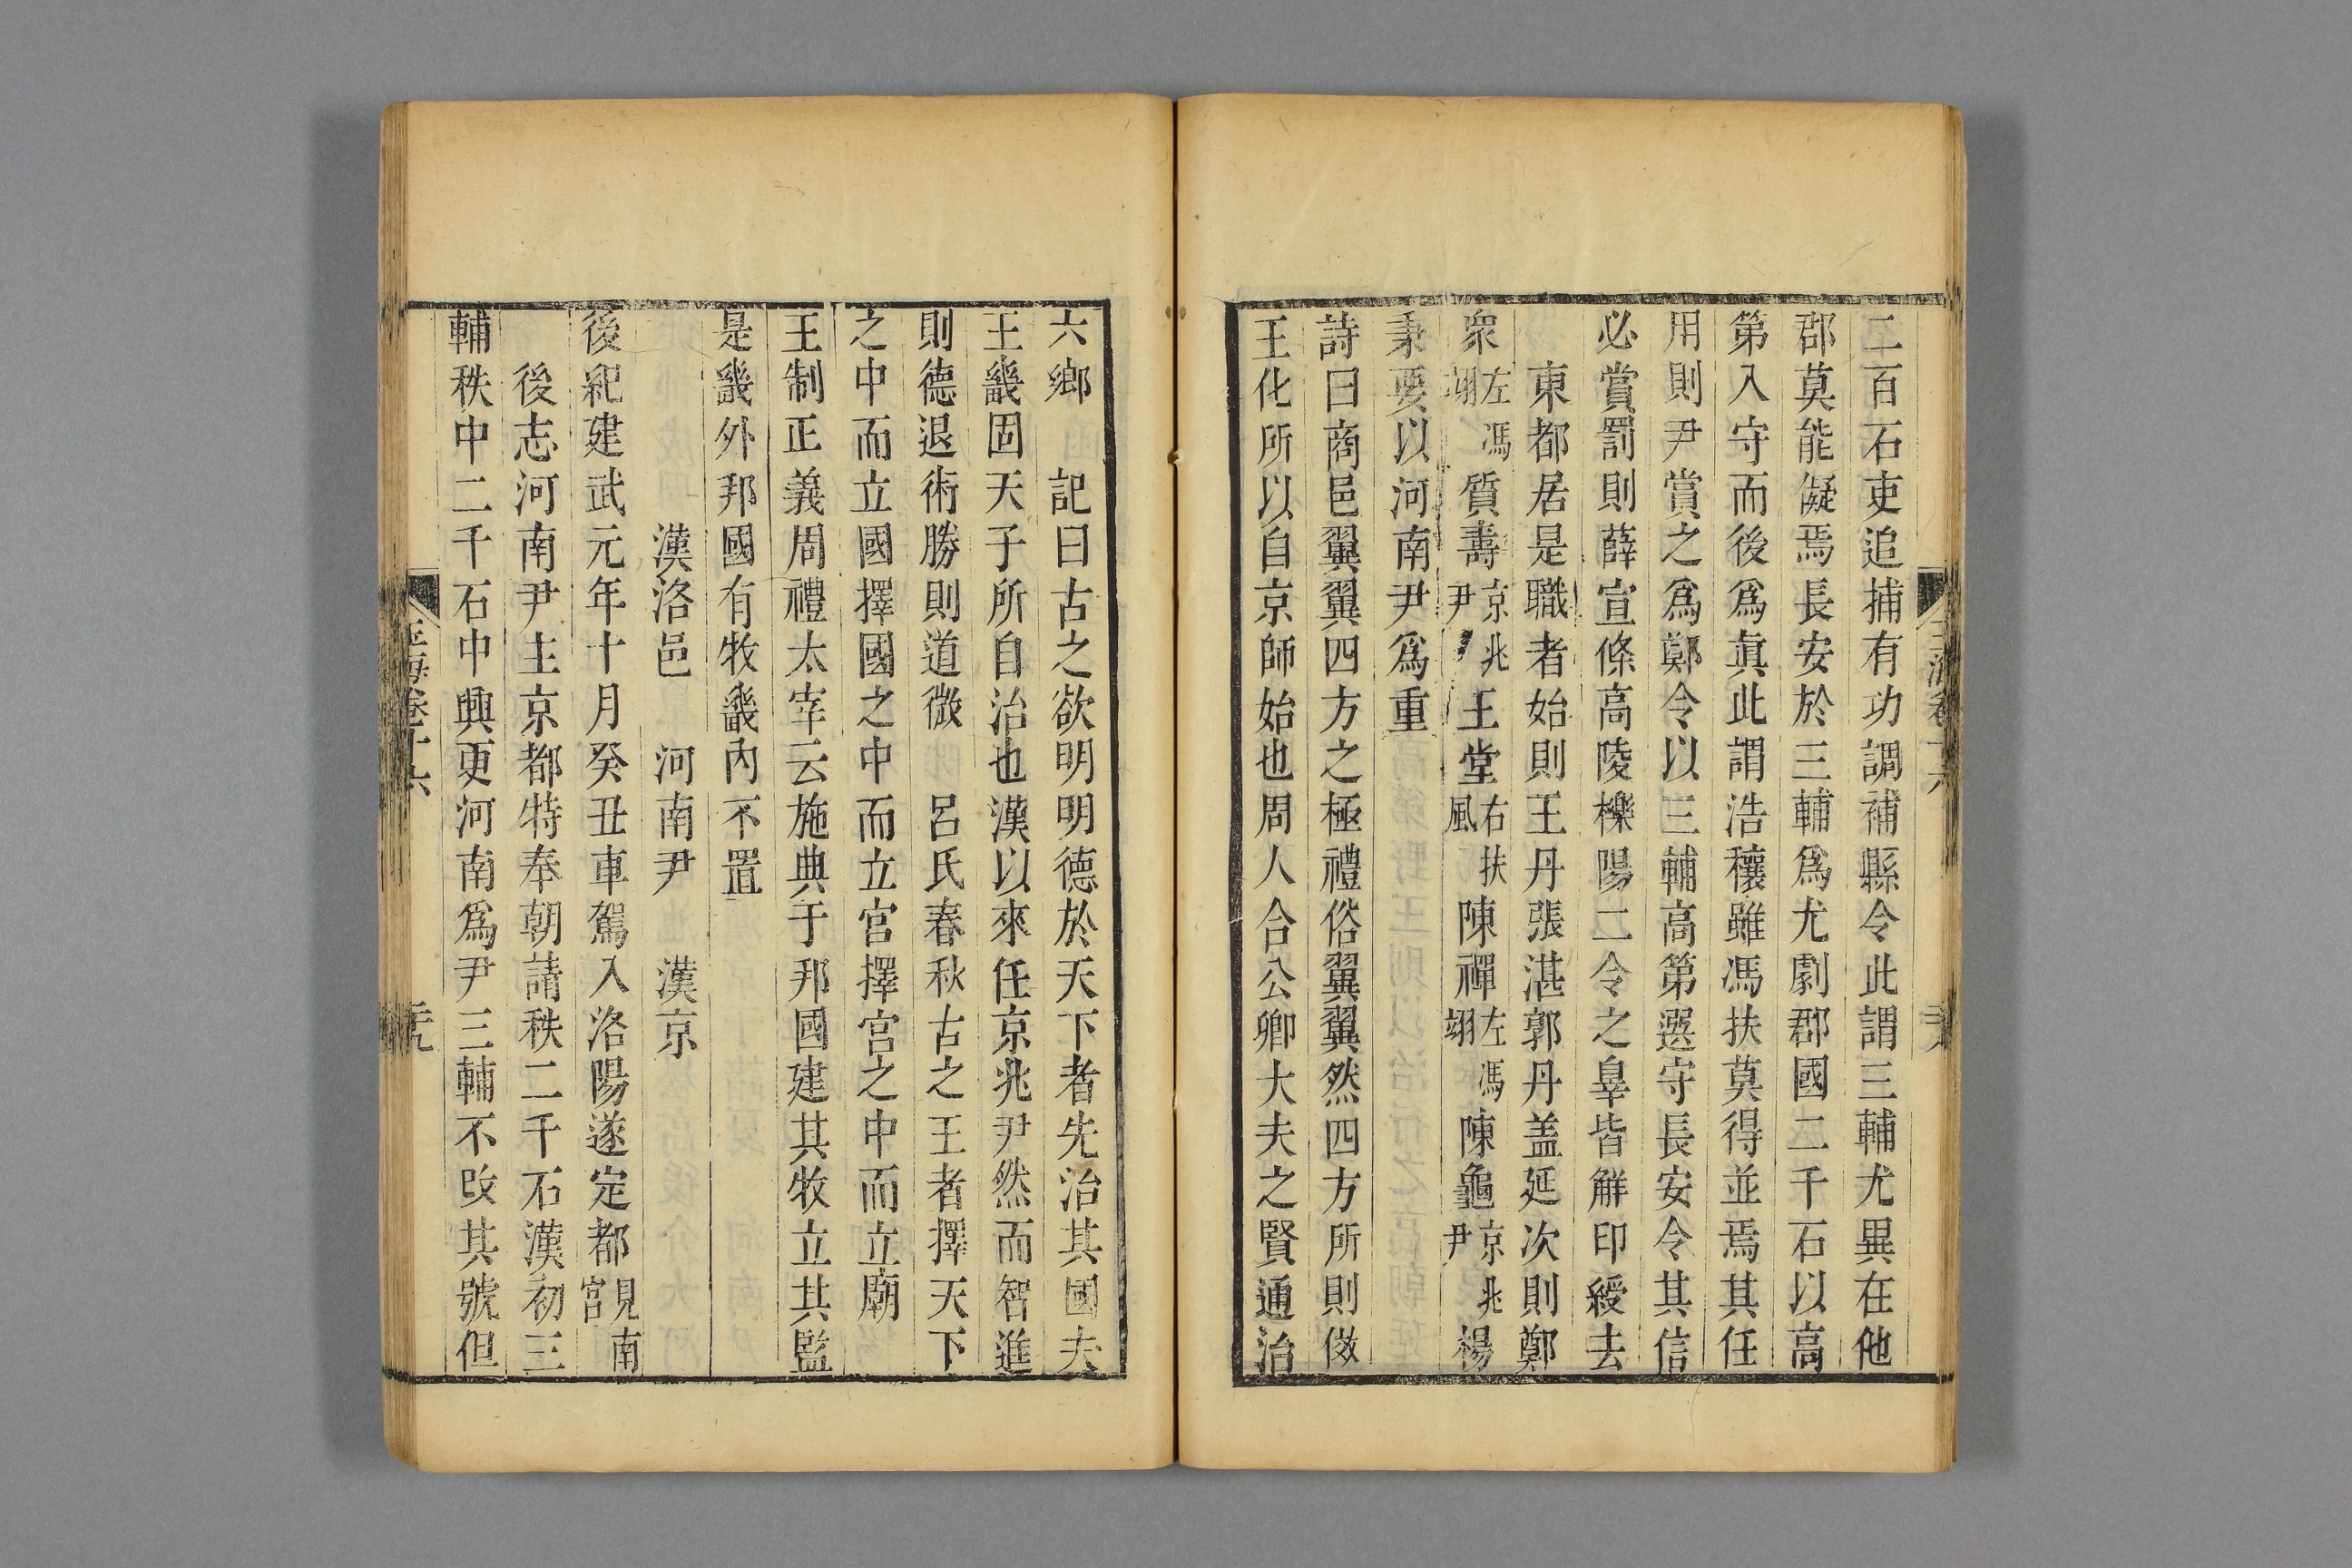 二百石吏追捕有功調補縣令此謂三輔尤異在他
郡莫能儗焉長安於三輔爲尤劇郡國二千石以高
第入守而後爲眞此謂浩穰雖馮扶莫得並焉其任
用則尹賞之爲鄭令以三輔高第選守長安令其信
必賞罰則薛宣條高陵櫟陽二令之辠皆解印綬去
東都居是職者始則王丹張湛郭丹盖延次則鄭
衆左馮翊質壽京兆尹王堂右扶風陳禪左馮翊陳龜京兆尹楊
秉要以河南尹爲重
詩曰商邑翼翼四方之極禮俗翼翼然四方所則傚
王化所以自京師始也周人合公卿大夫之賢通治
六鄉 記曰古之欲明明德於天下者先治其國夫
王畿固天子所自治也漢以來任京兆尹然而智進
則德退術勝則道微 呂氏春秋古之王者擇天下
之中而立國擇國之中而立宮擇宮之中而立廟
王制正義周禮太宰云施典于邦國建其牧立其監
是畿外邦國有牧畿內不置
漢洛邑 河南尹 漢京
後紀建武元年十月癸丑車駕入洛陽遂定都見南宮
後志河南尹主京都特奉朝請秩二千石漢初三
輔秩中二千石中興更河南爲尹三輔不改其號但
玉海卷十六 二九